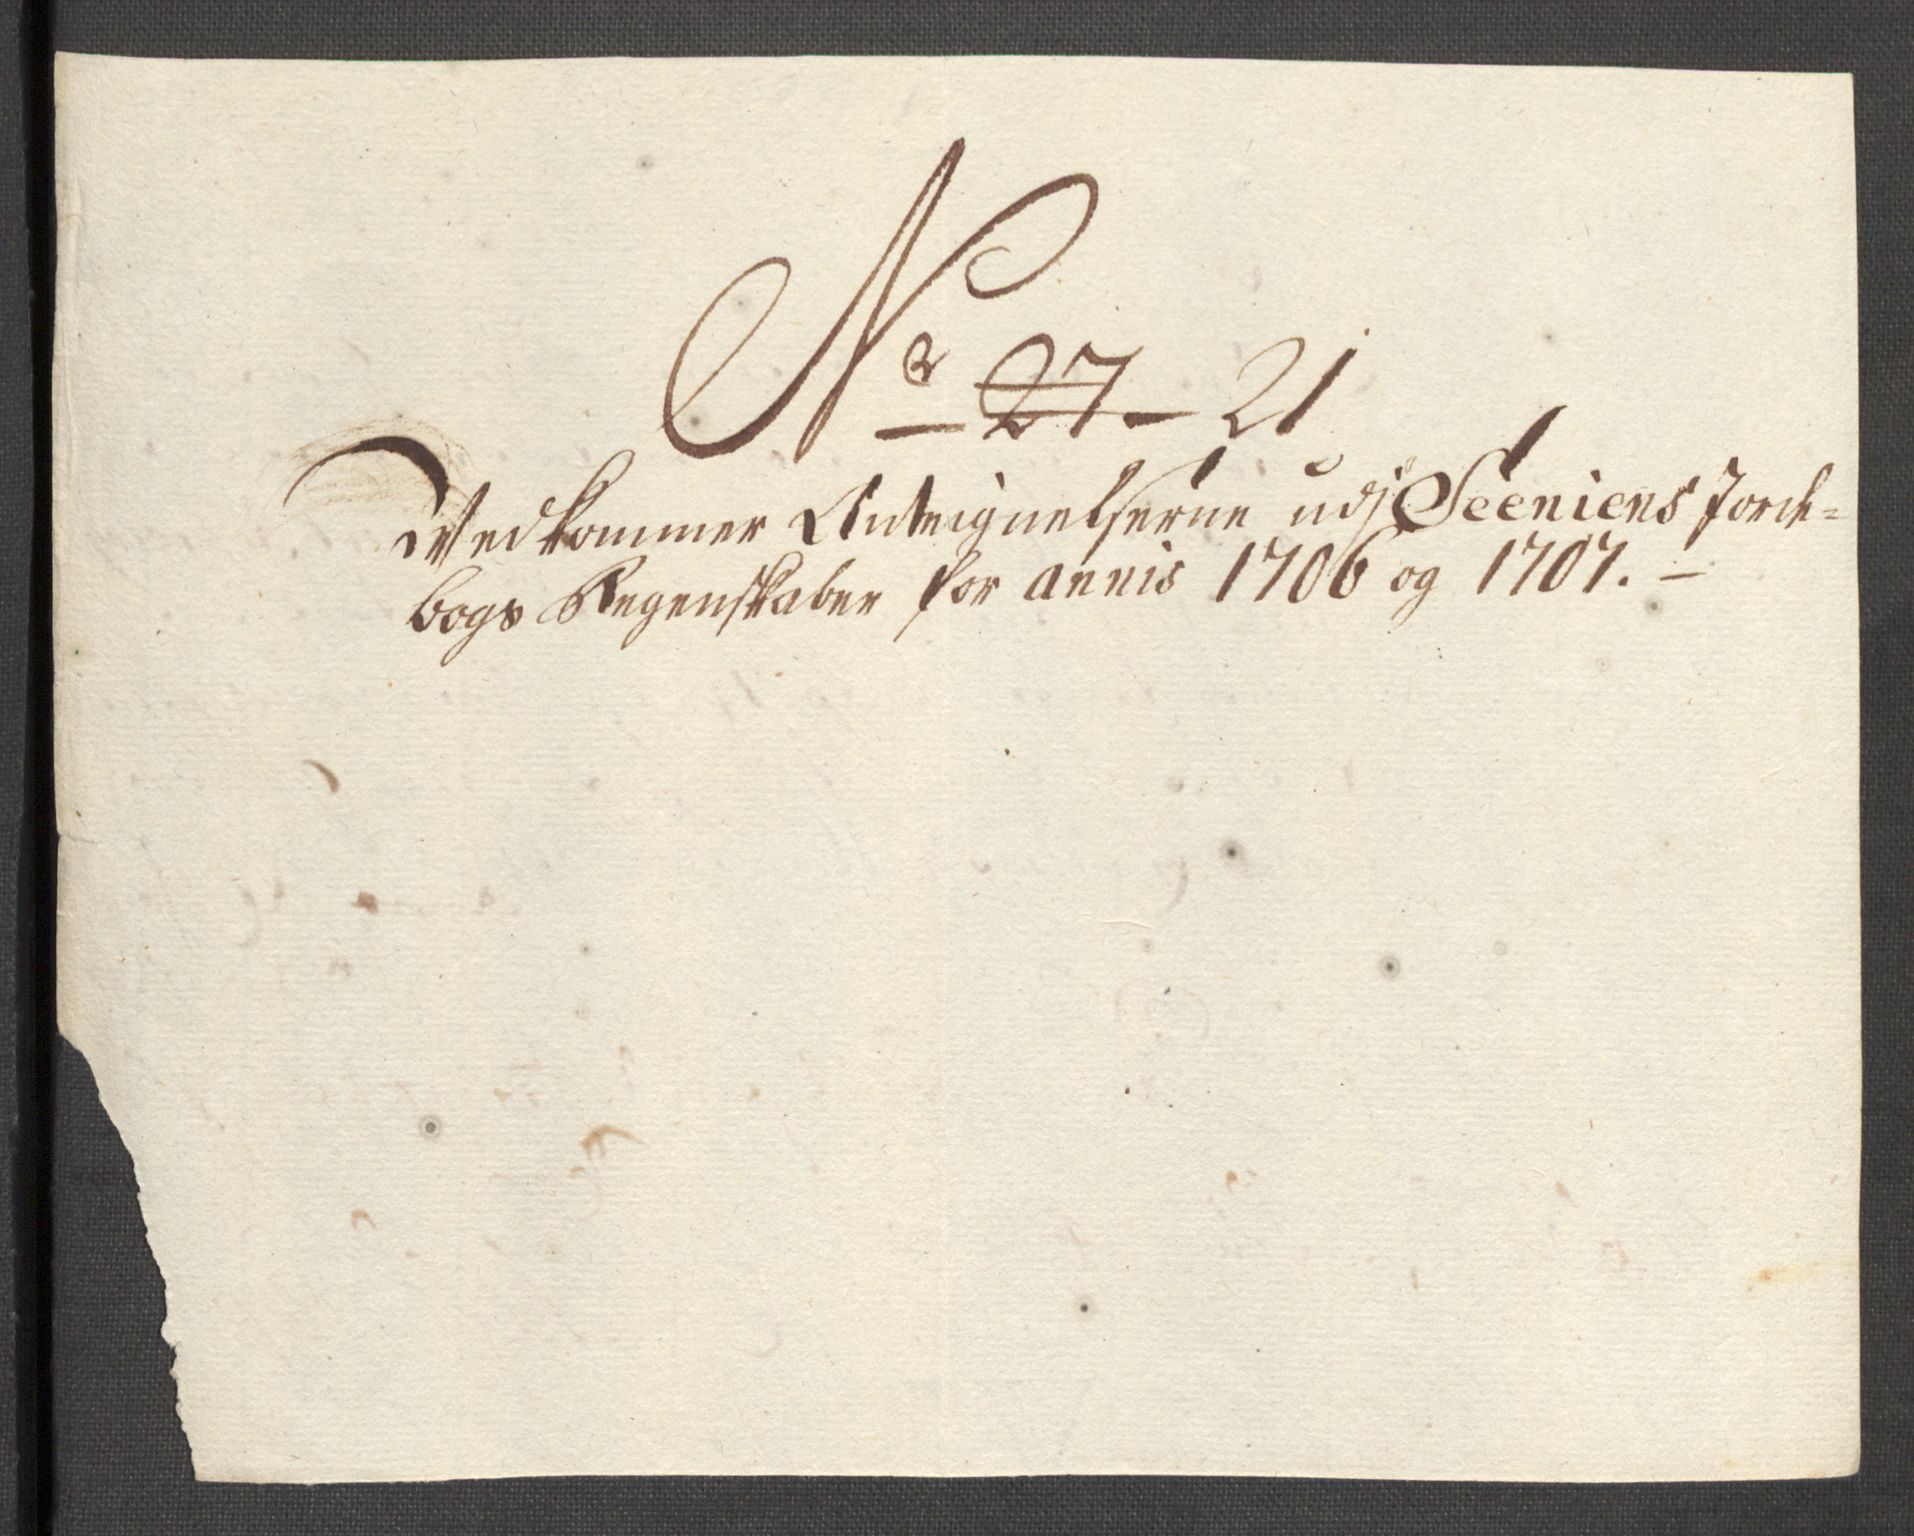 No 27 21
Vedkommer Antegnelserne udj Seeniens Jorde=
bogs Regenskaber for annis 1706 og 1707. —